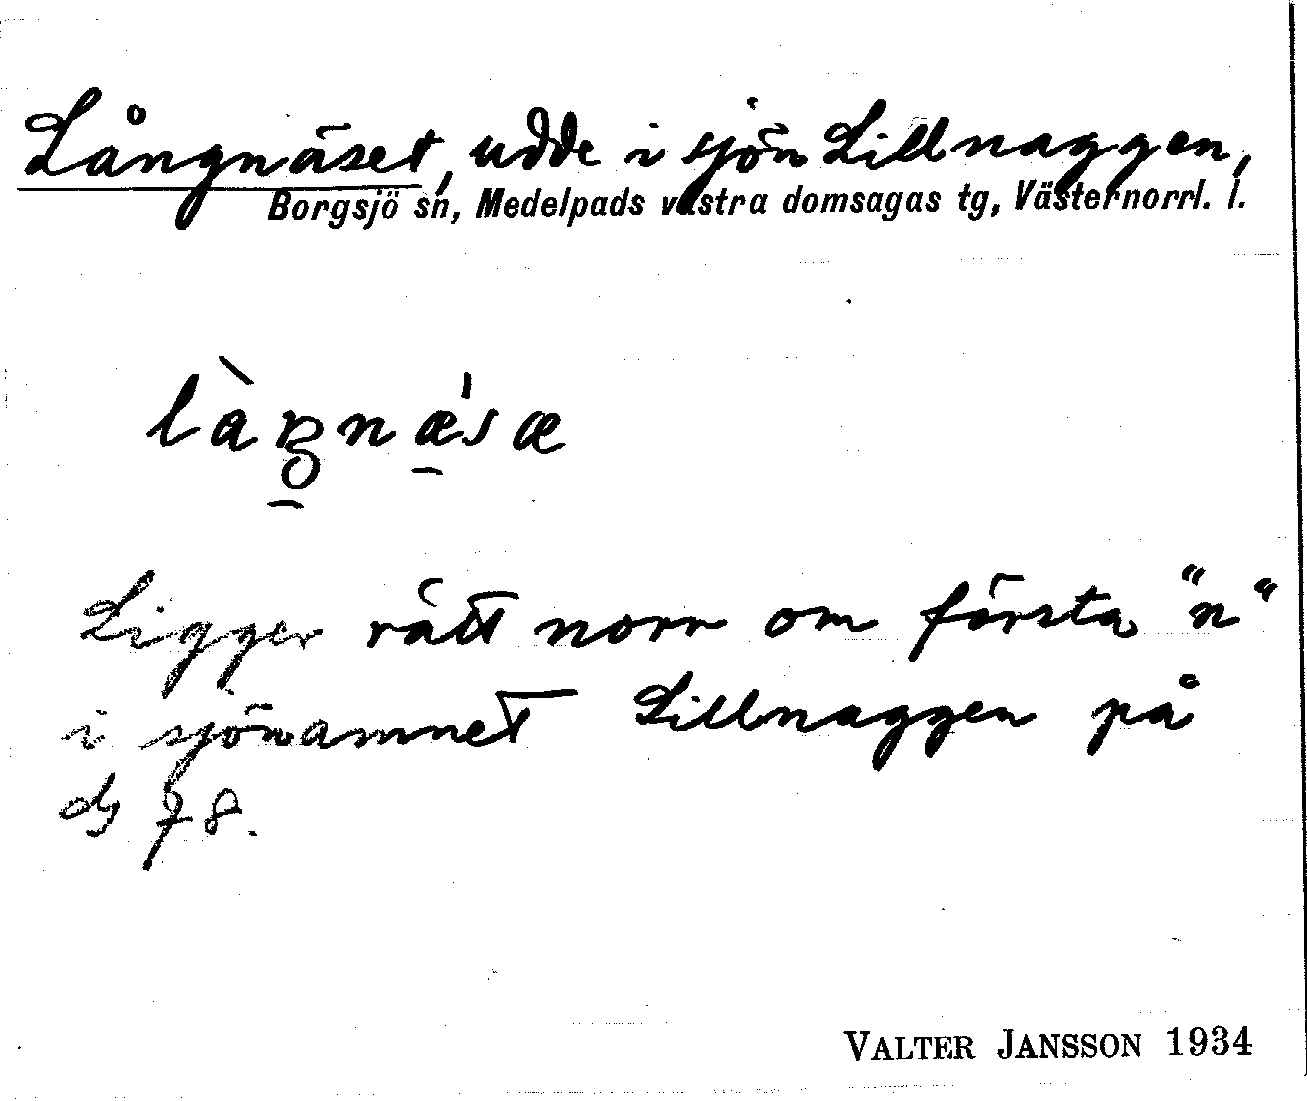 Långnäset, udde i sjön Lillnaggen,
Borgsjö sn, Medelpads västra domsagas tg, Västernorrl. l.
Ligger rätt norr om första "n"
i sjönamnet Lillnaggen på
db 78.
VALTER JANSSON 1934